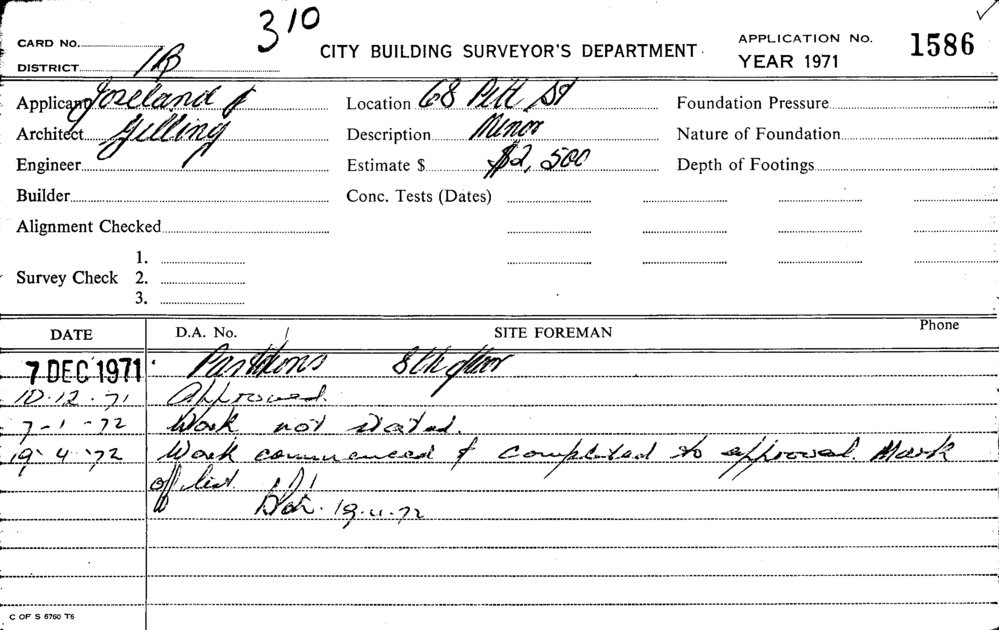 310
CARD No.
CITY BUILDING SURVEYOR'S DEPARTMENT
APPLICATION No. 1586
DISTRICT 1B
YEAR 1971
Applicant Joseland &
Location 68 Pitt St
Foundation Pressure
Architect Gilling
Description Minor
Nature of Foundation
Engineer
Estimate $ $2,500
Depth of Footings
Builder
Conc. Tests (Dates)
Alignment Checked
1.
Survey Check 2.
3.
DATE D.A. No. SITE FOREMAN Phone
7 DEC 1971 Partitions 8th floor
10.12.71 Approved.
7-1-72 Work not started.
19.4.72 Work commenced & completed to approval. Mark
off list.
19.4.72
C OF S 6760 T6